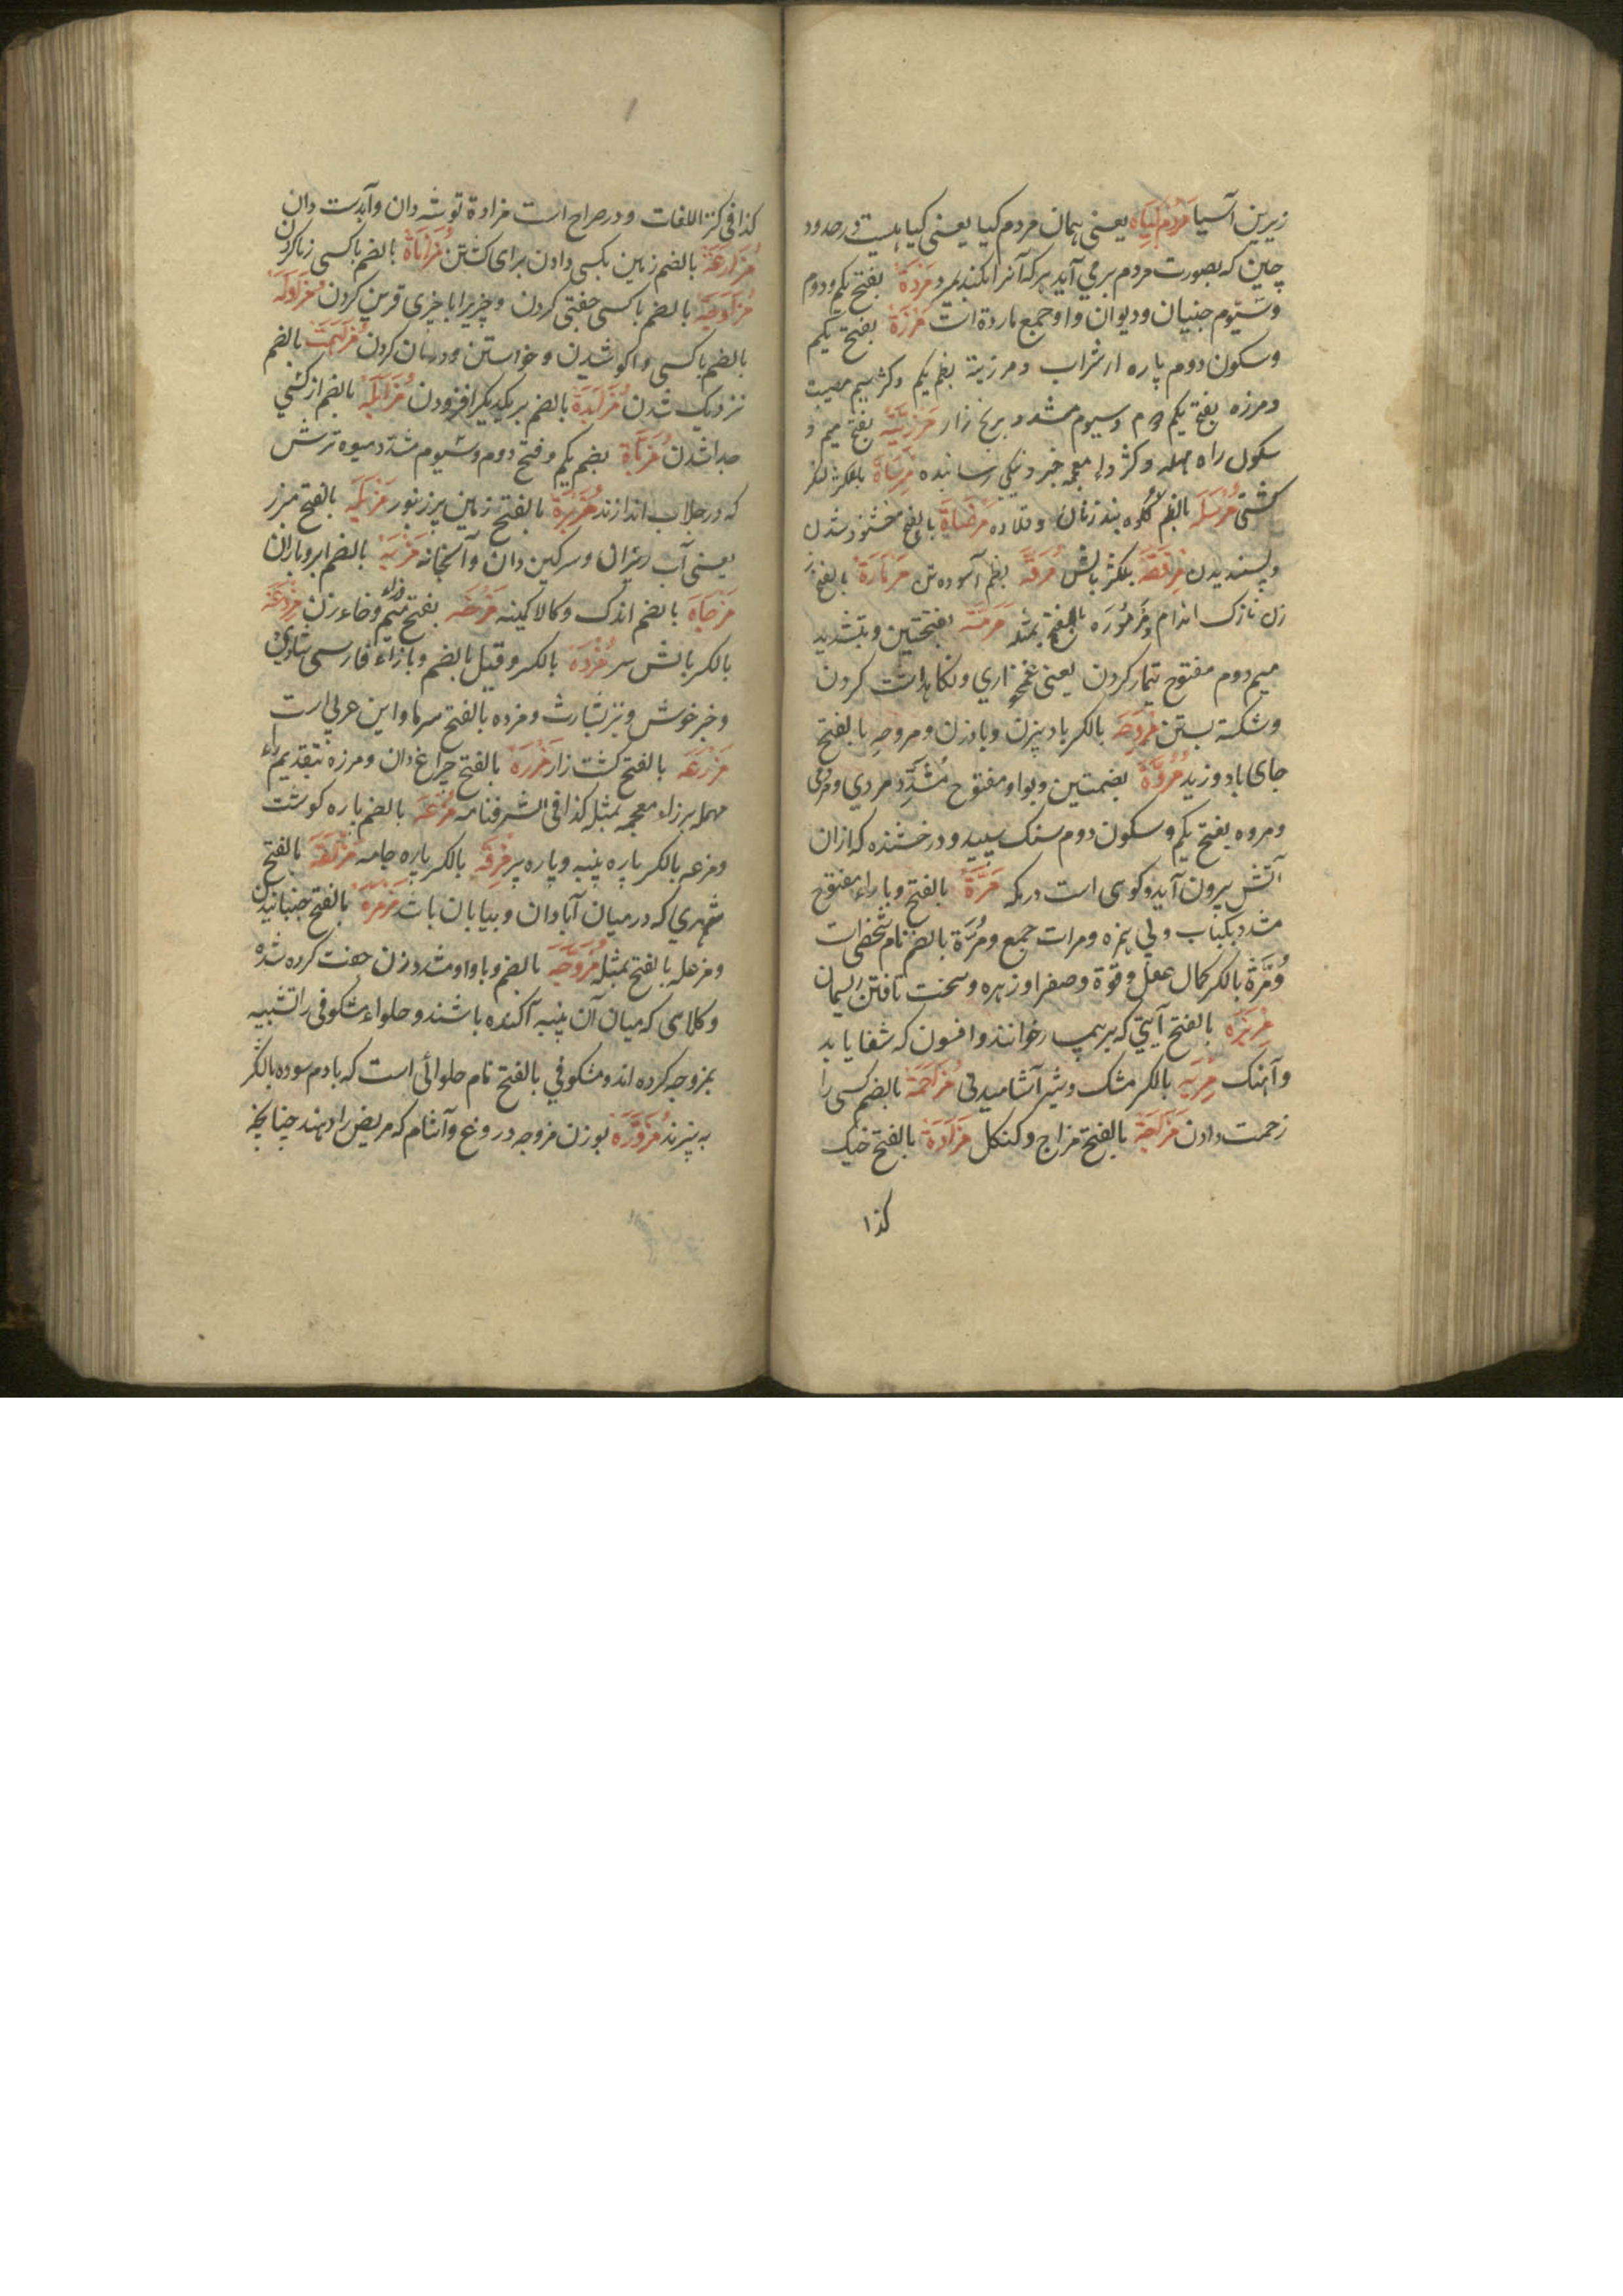 زیرین آسیا مردم گیاه یعنی همان مردم کیا یعنی کیا هیست در حدود
چین که بصورت مردم برمی آید هرکه آنرا بکند بمرد مَرَدَة بفتح یکم و دوم
وسیوم جنیان و دیوان و او جمع ماردة است مَرْزَة بفتح یکم
وسکون دوم پاره از شراب و مرزیة بضم یکم و کسر سیم مصیبت
ومرزه بفتح یکم و دوم وسیوم مشدد برنج زار مَرْزِیَّة بفتح میم و
سکون راء مهمله و کسر زاء معجمه خبر و نیکی رسانیده مِرْسَاة بالکسر لنکر
کشتی مُرْسَلَه بالضم کلوه بند زنان و قلاده مَرْضَاة بالفتح خشنود شدن
وپسندیدن مِرْفَقَة بالکسر بالش مُرَفَّه بضم آسوده تن مَرْمَارَة بالفتح
زن نازک اندام ومَرْمُوْرَه بالفتح بمثله مَرَمَّه بفتحتین و بتشدید
میم دوم مفتوح تیمار کردن یعنی غمخواری و نکاهداشت کردن
وشکسته بستن مِرْوَحَه بالکسر بادبیزن و بادزن و مروحه بالفتح
جای باد وزیدن مُرُوَّة بضمتین و بواو مفتوح مُشَدَّد مردی و مردمی
ومروه بفتح یکم وسکون دوم سنک سپید و درخشنده که ازان
آتش بیرون آید و کوهی است در مکه مَرَّة بالفتح و با راء مفتوح
مشدد یکبار ومرات جمع و مُرَّة بالضم نام شخصی است
ومِرَّة بالکسر کمال عقل و قوة و صفرا و زهره و سخت تافتن ریسمان
بالفتح آیتی که بر بیمار خوانند و افسون که شفا یابد
وآهنک مِرْیَه بالکسر مشک و شیر آشامیدنی مُزَاحَمَة بالضم کسی را
زحمت دادن مَزَاجَة بالفتح مزاج و کنکل مَزَادَة بالفتح خیک
کذا
کذا فی کنز اللغات و در صراح است مزادة توشه دان و آبدست دان
مُزَارَعَة بالضم زمین بکسی دادن برای کشتن مُزَانَاة بالضم باکسی زنا کردن
مُزَاوَجَة بالضم باکسی جفتی کردن و چیزیرا با چیزی قرین کردن مُزَاوَلَه
بالضم باکسی واکوشیدن و خواستن و درمان کردن بالضم
نزدیک شدن مُزَایَدَة بالضم بریکدیکر افزودن مُزَایَلَه بالضم از کسی
جدا شدن بضم یکم و فتح دوم و سیوم مشدد میوه ترش
که در جلاب اندازند بالفتح زمین پرزنبور مَزْبَلَه بالفتح مبرز
یعنی آب ریزان و سرکین دان و آبخانه بالضم ابر و باران
مُزْجَاة بالضم اندک و کالا کمینه مَزَخَّه بفتح میم و خاء زن مِزْدَغَه
بالکسر بالش سر مُژْدَه بالکسر و قیل بالضم و با زاء فارسی شادی
وخبر خوش و نیز بشارت و مزده بالفتح سرما و این عربی است
مَزْرَعَه بالفتح کشت زار بالفتح چراغ دان و مرزه بتقدیم راء
مهمله بر زاء معجمه بمثله کذا فی الشرفنامه مُزْعَه بالضم پاره کوشت
ومزعه بالکسر پاره پنبه و پاره پر مِزْقَه بالکسر پاره جامه بالفتح
شهری که درمیان آبادان و بیابان باشد مَزْمَزَه بالفتح جنبانیدن
ومزعله بالفتح بمثله مُزَوَّجَه بالضم و با واو مشدد زن جفت کرده شده
وکلاهی که میان آن پنبه آکنده باشند و حلواء مشکوفی را تشبیه
بمزوجه کرده اند و مشکوفی بالفتح نام حلوائی است که بادام سوده با شکر
به پزند مُزَوَّرَة بوزن مزوجه دروغ و آشام که مریض را دهند چنانچه